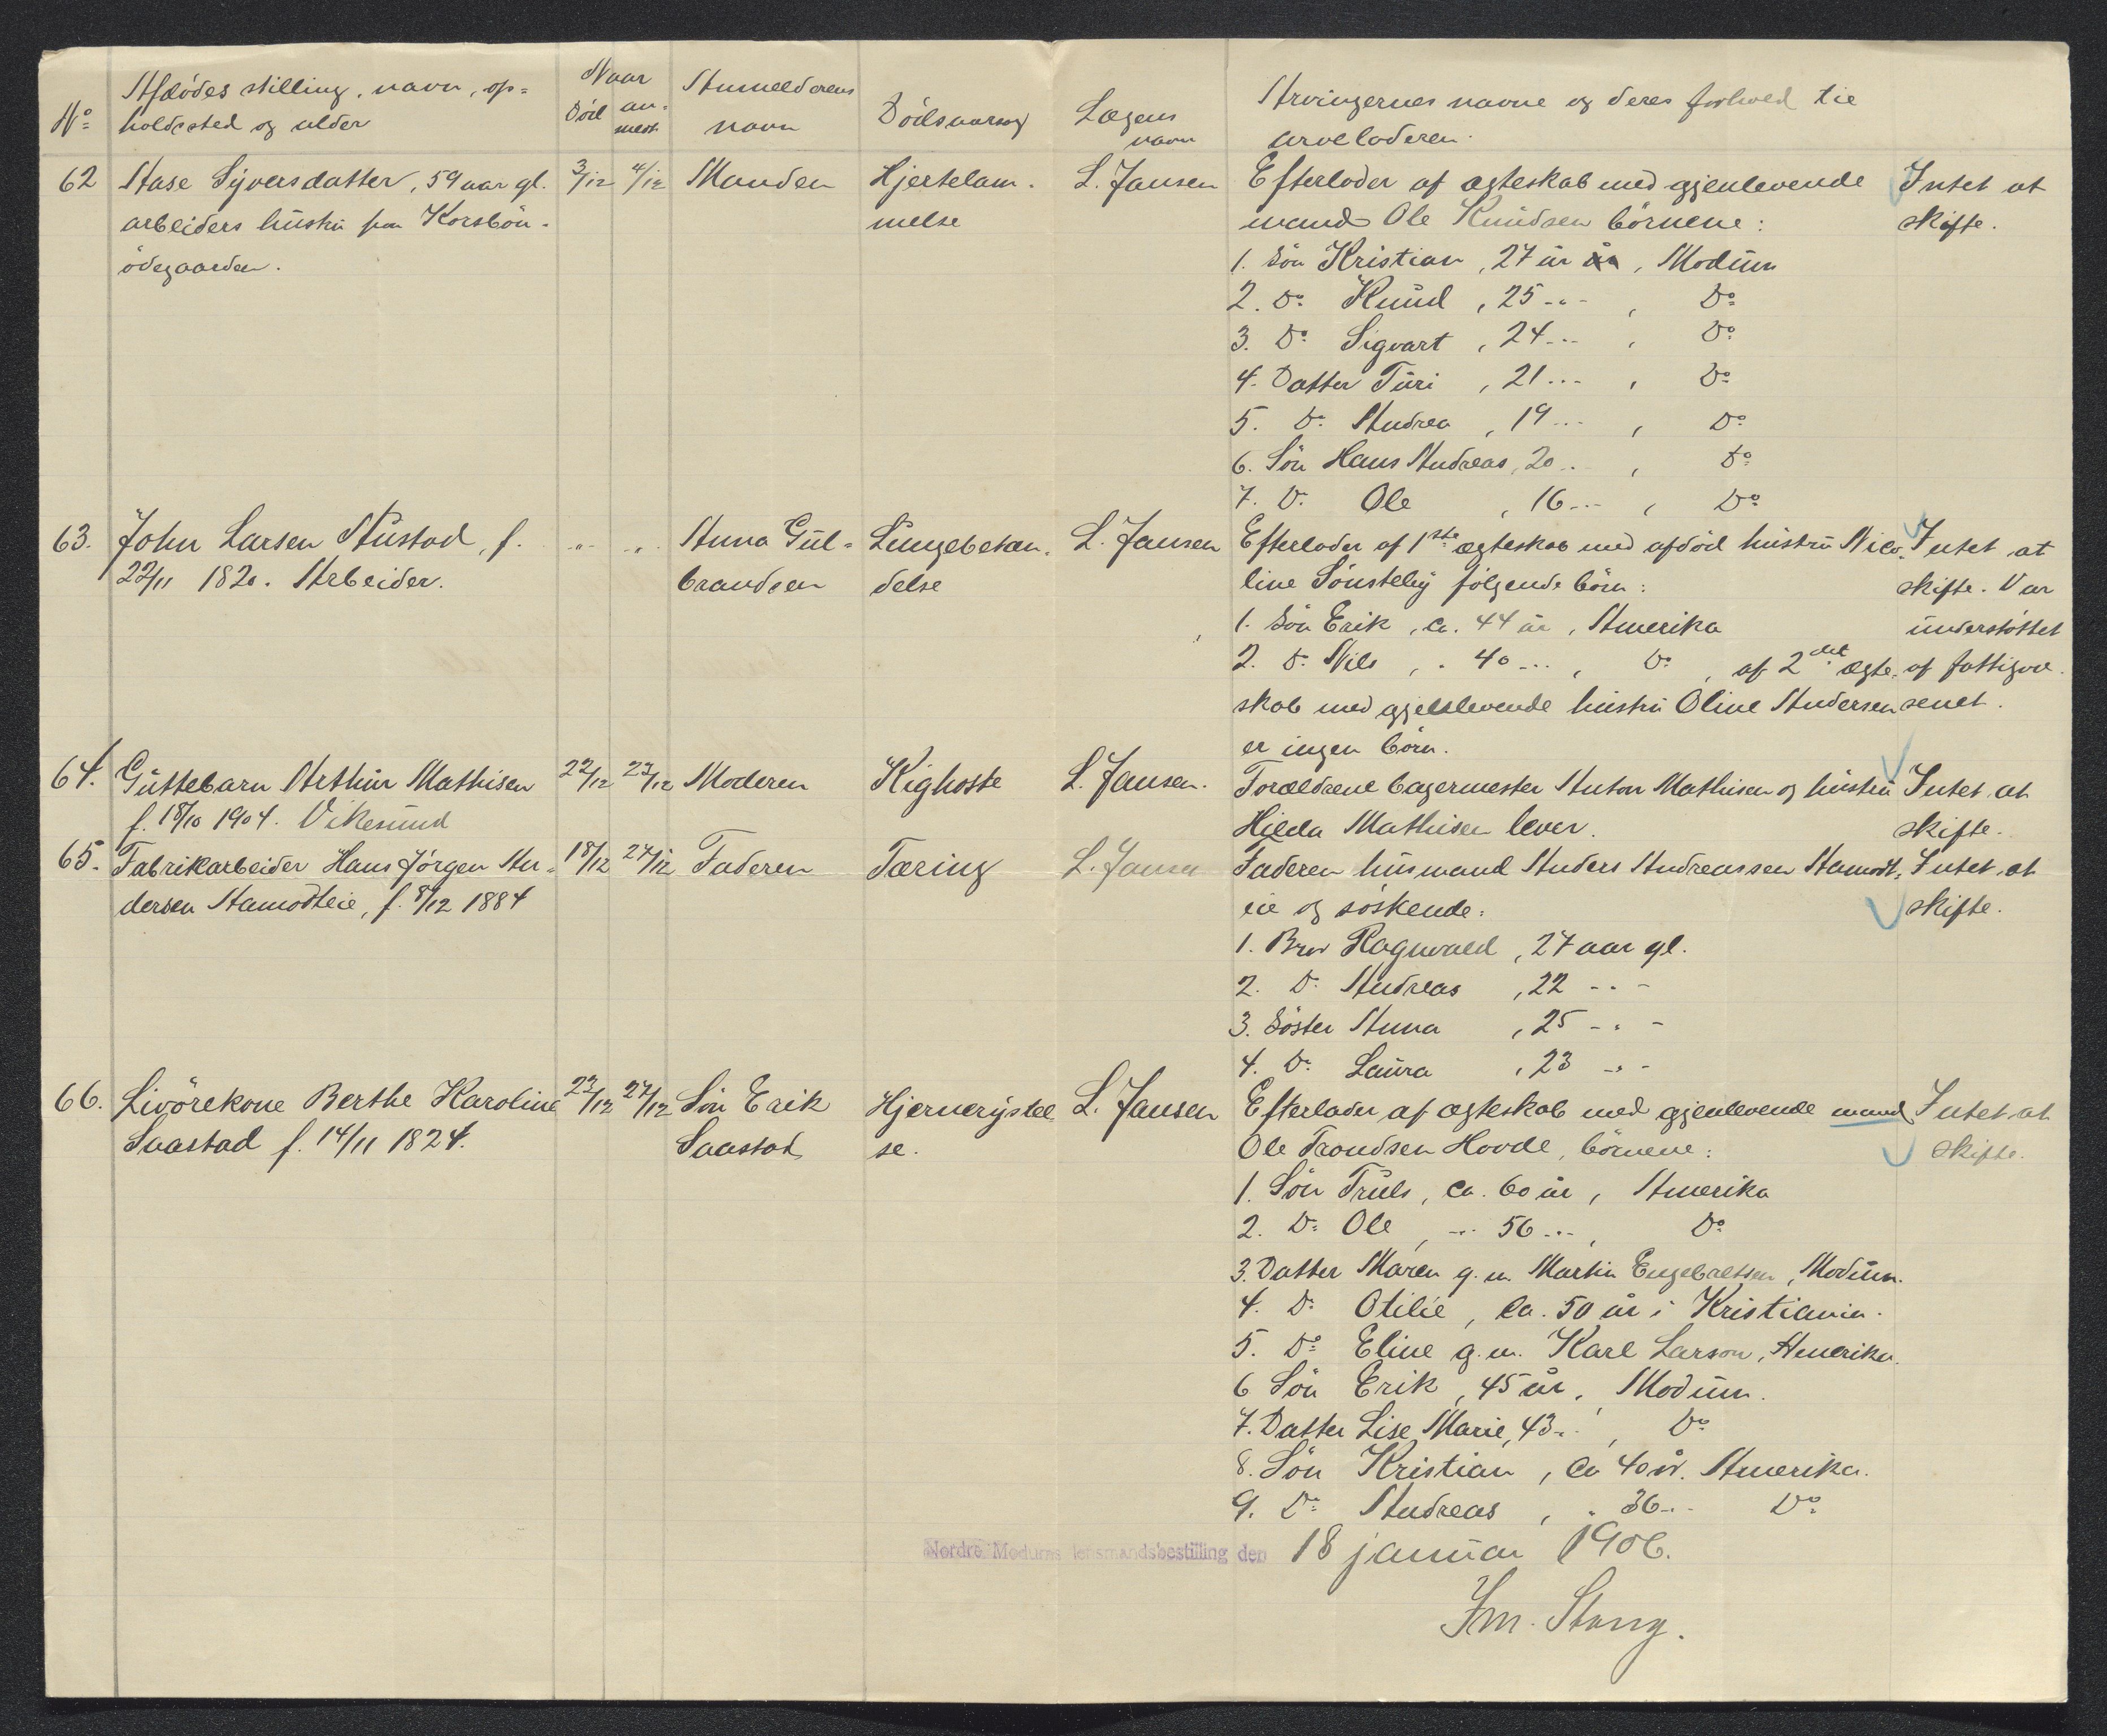 No Afdødes stilling, navn, op= Naar Anmelderens Dödsaarsag Lægens Arvingernes navne og deres forhold til
holdssted og alder Död an- meldt navn navn arveladeren.
62 Aase Syversdatter, 59 aar gl. 3/12 4/12 Manden Hjertelam- L. Jansen Efterlader af ægteskab med gjenlevende Intet at
arbeiders hustru fra Korsbön- melse mand Ole Knudsen börnene: skifte.
ödegaarden. 1. Sön Kristian, 27 år, Modum
2. Do Knud, 25 - " - , Do
3. Do Sigvart, 24 - " - , Do
4. Datter Turi, 21 - " - , Do
5. Do Andrea, 19 - " - , Do
6. Sön Hans Andreas, 20 - " , Do
7. Do Ole, 16 - " - , Do
63. John Larsen Austad, f. - " - - " - Anna Gul= Lungebetæn- L. Jansen Efterlader af 1ste ægteskab med afdöd hustru Nico- Intet at
22/11 1820. Arbeider. brandsen delse line Sönsteby fölgende börn: skifte. Var
1. Sön Erik, ca. 44 år, Amerika understöttet
2. Do Nils, " 40 - " - , Do, af 2det ægte- af fattigvæ-
skab med gjenlevende hustru Oline Andersen senet.
er ingen börn.
64. Guttebarn Arthur Mathisen 22/12 23/12 Moderen Kighoste L. Jansen. Forældrene bagermester Anton Mathisen og hustru Intet at
f. 18/10 1904. Vikesund Hilda Mathisen lever. skifte.
65. Fabrikarbeider Hans Jörgen An= 18/12 27/12 Faderen Tæring L. Jansen Faderen husmand Anders Andreassen Hamodt= Intet at
dersen Hamodteie, f. 8/12 1884 eie og söskende: skifte.
1. Bror Ragnvald, 27 aar gl.
2. Do Andreas, 22 - " -
3. Söster Anna, 25 - " -
4. Do Laura, 23 - " -
66. Livörekone Berthe Karoline 23/12 27/12 Sön Erik Hjernerystel- L. Jansen Efterlader af ægteskab med gjenlevende mand Intet at
Saastad f. 14/11 1824. Saastad se. Ole Trondsen Hovde, börnene: skifte.
1. Sön Truls, ca. 60 år, Amerika
2. Do Ole, - " - 56 - " - , Do
3. Datter Maren g. m. Martin Engebretsen, Modum.
4. Do Otilie, ca. 50 år i Kristiania.
5. Do Eline g. m. Karl Larson, Amerika.
6 Sön Erik, 45 år, Modum.
7. Datter Lise Marie, 43 - " , Do
8. Sön Kristian, ca 40 år. Amerika.
9. Do Andreas, " 36 - " - Do
Nordre Modums lensmandsbestilling den 18 januar 1906.
Fm. Stang.